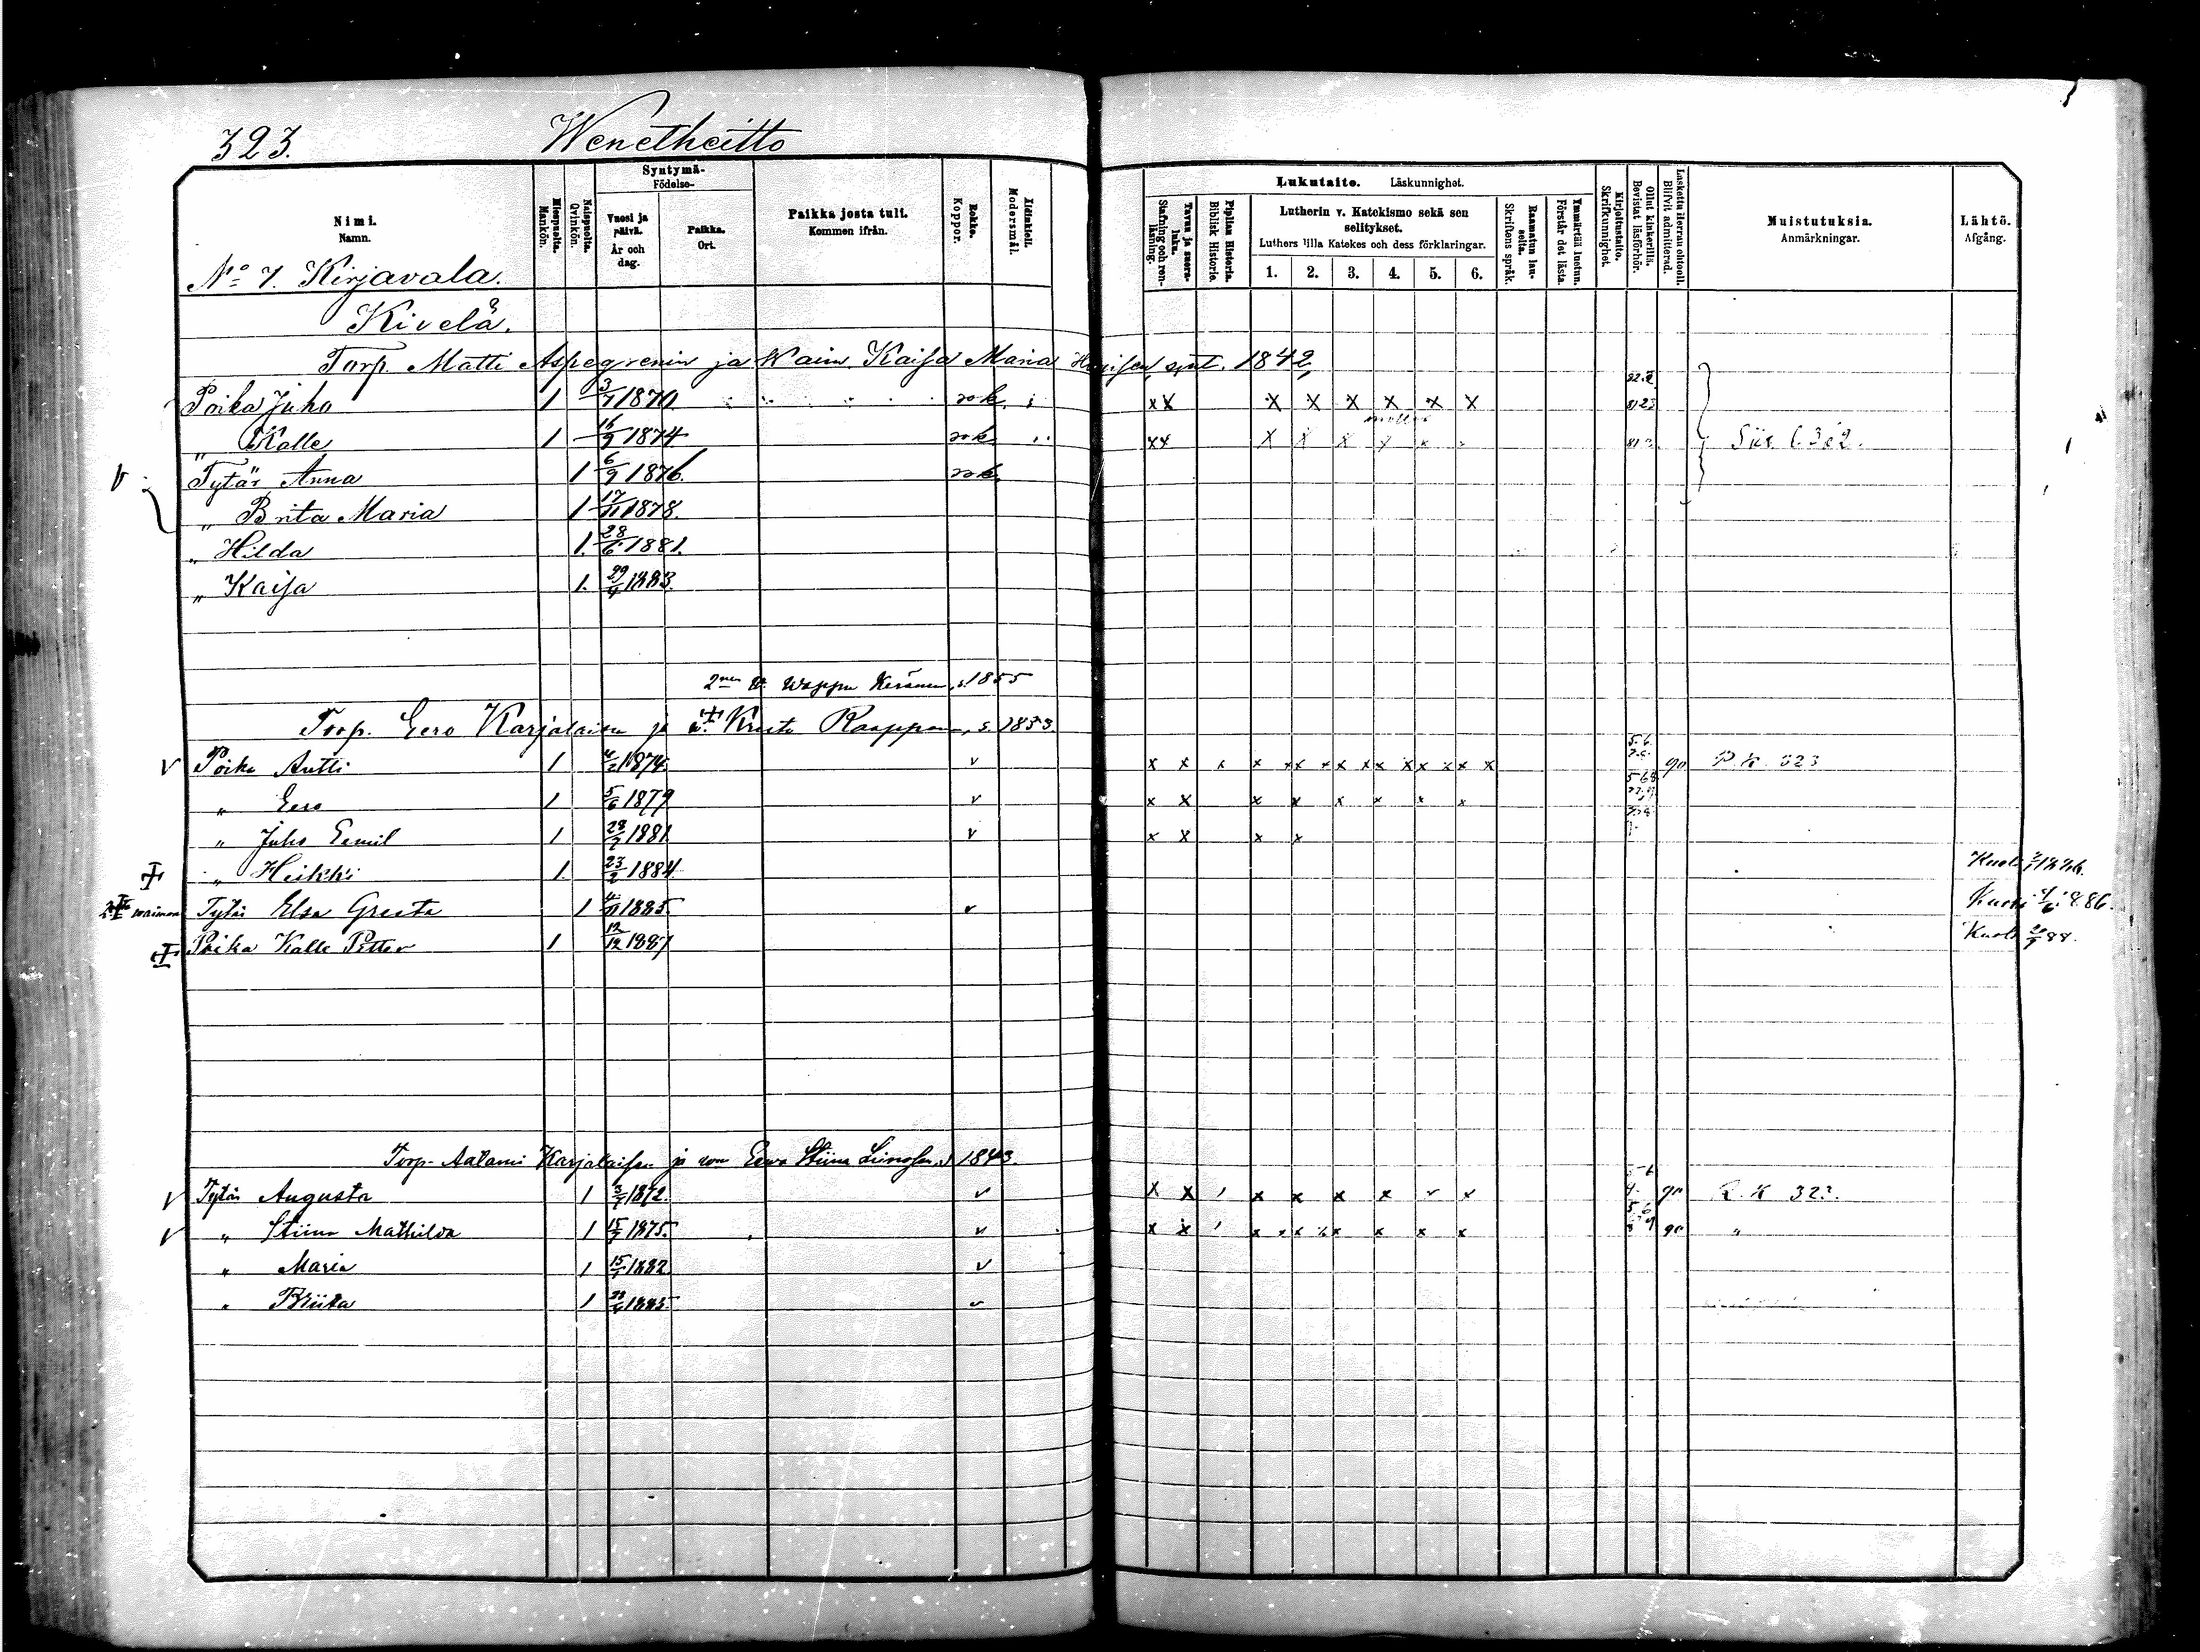 323.
Wenetheitto
Nimi. Namn.
Miespuolta. Mankön.
Naispuolta. Qvinkön.
Syntymä- Födelse-
Vuosi ja päivä. År och dag.
Paikka. Ort.
Paikka josta tuli. Kommen ifrån.
Rokko. Koppor.
Äidinkieli. Modersmål.
Lukutaito. Läskunnighet.
Tavuu ja suora- luku. Stafning och ren- läsning.
Piplian Historia. Biblisk Historie.
Lutherin v. Katekismo sekä sen selitykset.
Luthers lilla Katekes och dess förklaringar.
1. 2. 3. 4. 5. 6.
Raamatun lau- seita. Skriftens språk.
Ymmärtää luetun. Förstår det lästa.
Kirjoitustaito. Skrifkunnighet.
Ollut kinkerillä. Bevistat läsförhör.
Laskettu iterran ehtooll. Blifvit admitterad.
Muistutuksia. Anmärkningar.
Lähtö. Afgång.
No 7. Kirjavala.
Kivelä.
Torp. Matti Aspegrenin ja Waim. Kaisa Maria synt. 1842,
Poika Juho 1 3/7 1870. rok. x x X X X X X X
" Kalle 1 16/9 1874 rok. x x X X X X x Siv. 1.362.
V Tytär Anna 1 6/9 1876. rok.
" Brita Maria 1 17/11 1878.
" Hilda 1. 28/6 1881.
" Kaisa 1. 29/4 1883.
2nen W. Wappu Keränen, s. 1855
Torp. Eero Karjalaisen ja w. Kreeta Raappana, s. 1853.
V Poika Antti 1 4/2 1874. v x x x x x x x x x x x x x x 90 P. K. 323
" Eero 1 5/6 1879 v x x x x x x x x
" Juho Eemil 1 28/7 1881. v x x x x
" Heikki 1. 23/2 1884. Kuoli 1886.
waimon Tytär Elsa Greeta 1 4/11 1885. v Kuoli 1886.
Poika Kalle Petter 1 12/12 1887 Kuoli 88.
Torp. Aatami Karjalaisen ja von Eeva Stiina s. 1843.
V Tytär Augusta 1 3/7 1872. v x x x x x x v x 90 R. K 323.
V " Stiina Mathilda 1 15/7 1875. v x x x x x x x x x 90 "
" Maria 1 15/1 1882 v
" Briita 1 1885. v